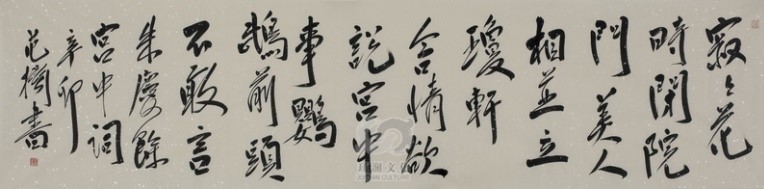 寂々花
時閉院
門美人
相並立
瓊軒
含情欲
說宮中
事鸚
鵡前頭
不敢言
朱慶餘
宮中詞
辛卯
范書